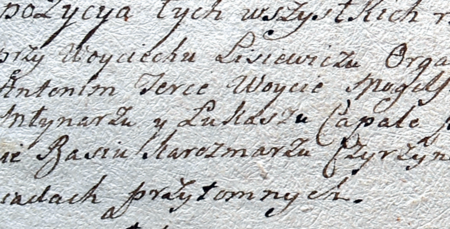 pożycya tych wszystkich
przy Woyciechu Lisiewiczu Orga
Antonim Jerce Woycie
Młynarzu y Łukaszu Capale
Basiu Karczmarzu Czyrzyn
przytomnych.